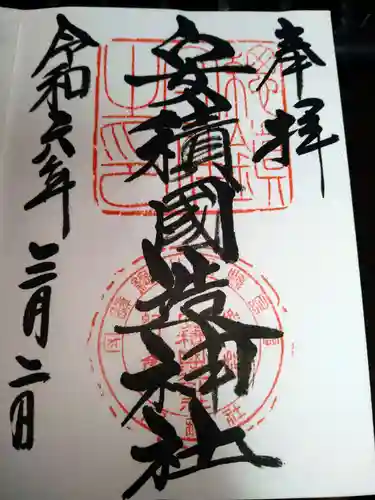 奉拝
安積國造神社
令和六年
三月二日